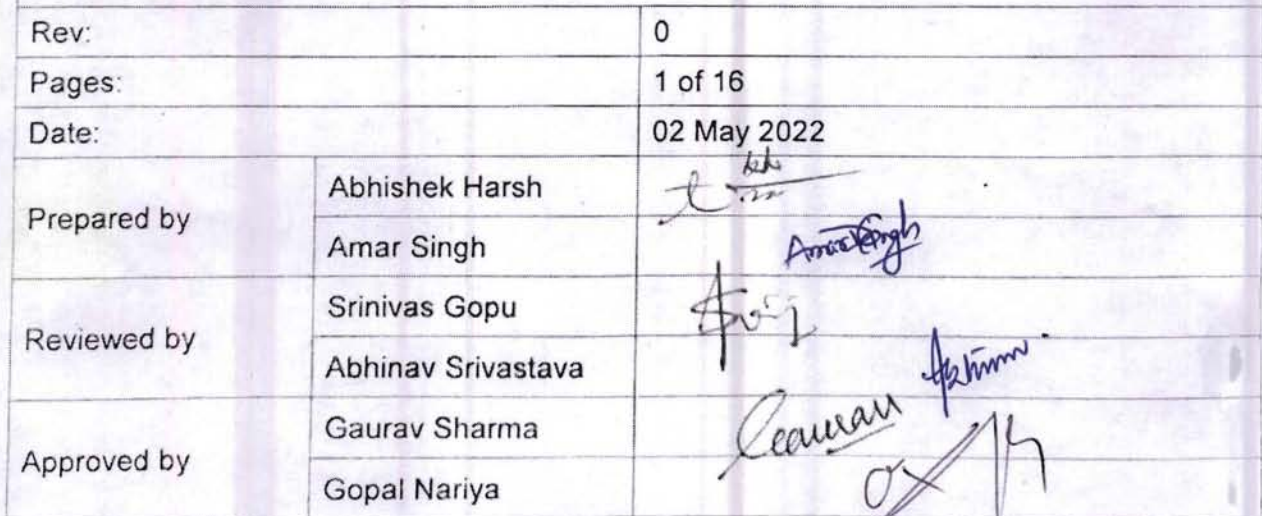 Rev: 0
Pages: 1 of 16
Date: 02 May 2022
Prepared by
Abhishek Harsh
Amar Singh AmarSingh
Reviewed by
Srinivas Gopu
Abhinav Srivastava
Approved by
Gaurav Sharma Gaurav
Gopal Nariya